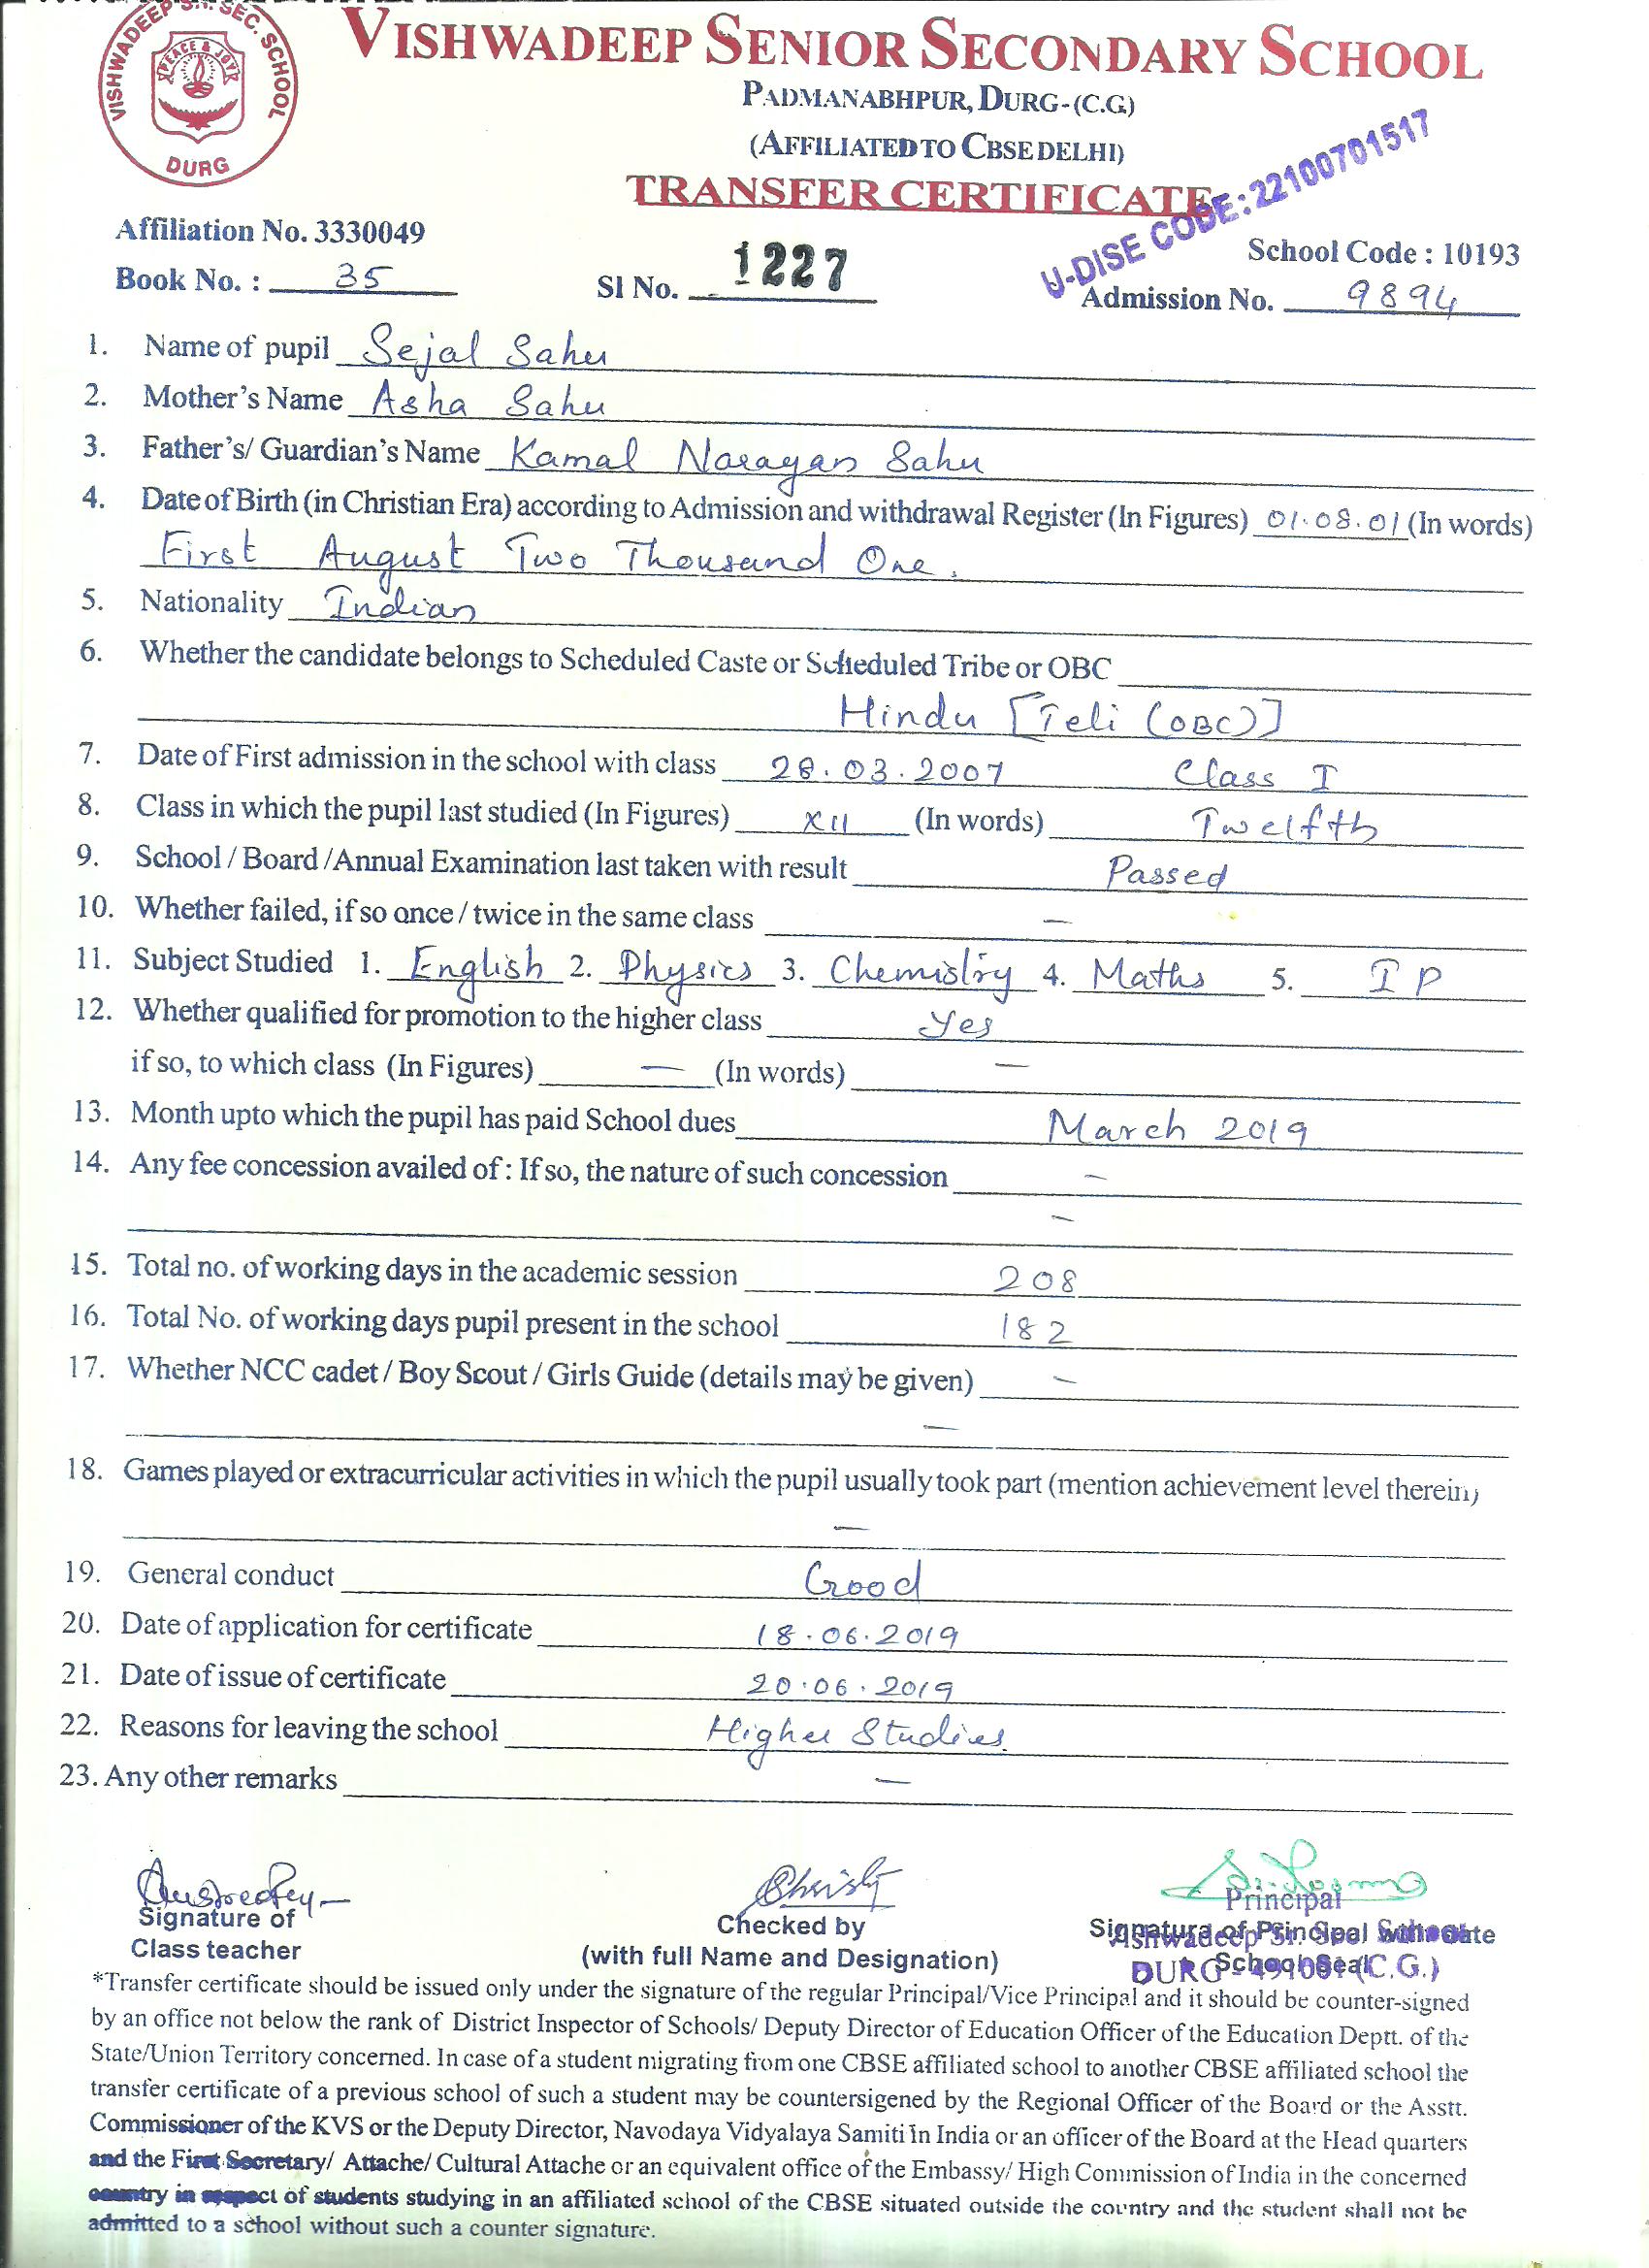 VISHWADEEP SR. SEC. SCHOOL
PEACE & JOY
DURG
VISHWADEEP SENIOR SECONDARY SCHOOL
PADMANABHPUR, DURG-(C.G.)
(AFFILIATED TO CBSE DELHI)
TRANSFER CERTIFICATE
U-DISE CODE: 22100701517
Affiliation No. 3330049
School Code : 10193
Book No. : 35 Sl No. 1227 Admission No. 9894
1. Name of pupil Sejal Sahu
2. Mother's Name Asha Sahu
3. Father's/ Guardian's Name Kamal Narayan Sahu
4. Date of Birth (in Christian Era) according to Admission and withdrawal Register (In Figures) 01.08.01 (In words)
First August Two Thousand One.
5. Nationality Indian
6. Whether the candidate belongs to Scheduled Caste or Scheduled Tribe or OBC
Hindu [Teli (OBC)]
7. Date of First admission in the school with class 28.03.2007 Class I
8. Class in which the pupil last studied (In Figures) XII (In words) Twelfth
9. School / Board /Annual Examination last taken with result Passed
10. Whether failed, if so once / twice in the same class —
11. Subject Studied 1. English 2. Physics 3. Chemistry 4. Maths 5. I P
12. Whether qualified for promotion to the higher class Yes
if so, to which class (In Figures) — (In words) —
13. Month upto which the pupil has paid School dues March 2019
14. Any fee concession availed of : If so, the nature of such concession —
—
15. Total no. of working days in the academic session 208
16. Total No. of working days pupil present in the school 182
17. Whether NCC cadet / Boy Scout / Girls Guide (details may be given) —
—
18. Games played or extracurricular activities in which the pupil usually took part (mention achievement level therein)
—
19. General conduct Good
20. Date of application for certificate 18.06.2019
21. Date of issue of certificate 20.06.2019
22. Reasons for leaving the school Higher Studies
23. Any other remarks —
Christy
Principal
Signature of Checked by Signature of Principal with date
Vishwadeep Sr. Sec. School
Class teacher (with full Name and Designation) School Seal
DURG - 491001 (C.G.)
*Transfer certificate should be issued only under the signature of the regular Principal/Vice Principal and it should be counter-signed
by an office not below the rank of District Inspector of Schools/ Deputy Director of Education Officer of the Education Deptt. of the
State/Union Territory concerned. In case of a student migrating from one CBSE affiliated school to another CBSE affiliated school the
transfer certificate of a previous school of such a student may be countersigened by the Regional Officer of the Board or the Asstt.
Commissioner of the KVS or the Deputy Director, Navodaya Vidyalaya Samiti in India or an officer of the Board at the Head quarters
and the First Secretary/ Attache/ Cultural Attache or an equivalent office of the Embassy/ High Commission of India in the concerned
country in respect of students studying in an affiliated school of the CBSE situated outside the country and the student shall not be
admitted to a school without such a counter signature.